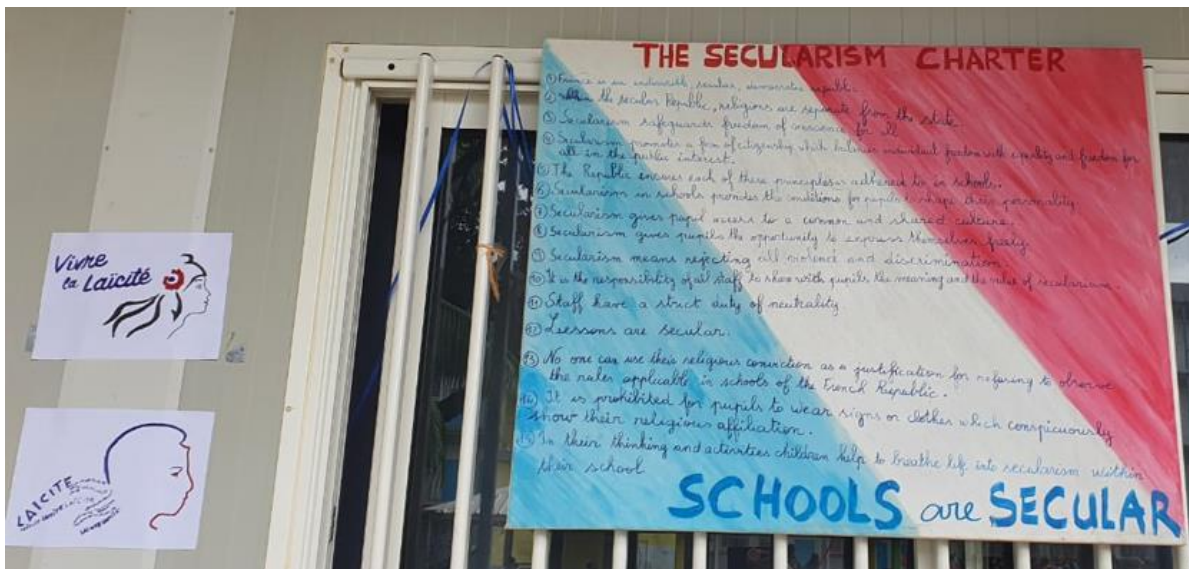 Vivre
la Laïcité
LAICITE
THE SECULARISM CHARTER
① France is an indivisible, secular, democratic republic.
② Within the secular Republic, religions are separate from the state.
③ Secularism safeguards freedom of conscience for all
④ Secularism promotes a form of citizenship which balances individual freedom with equality and freedom for
all in the public interest.
⑤ The Republic ensures each of these principles is adhered to in schools.
⑥ Secularism in schools provides the conditions for pupils to shape their personality.
⑦ Secularism gives pupil access to a common and shared culture.
⑧ Secularism gives pupils the opportunity to express themselves freely.
⑨ Secularism means rejecting all violence and discrimination.
⑩ It is the responsibility of all staff to share with pupils the meaning and the value of secularism.
⑪ Staff have a strict duty of neutrality
⑫ Lessons are secular.
⑬ No one can use their religious conviction as a justification for refusing to observe
the rules applicable in schools of the French Republic.
⑭ It is prohibited for pupils to wear signs or clothes which conspicuously
show their religious affiliation.
⑮ In their thinking and activities children help to breathe life into secularism within
their school
SCHOOLS are SECULAR